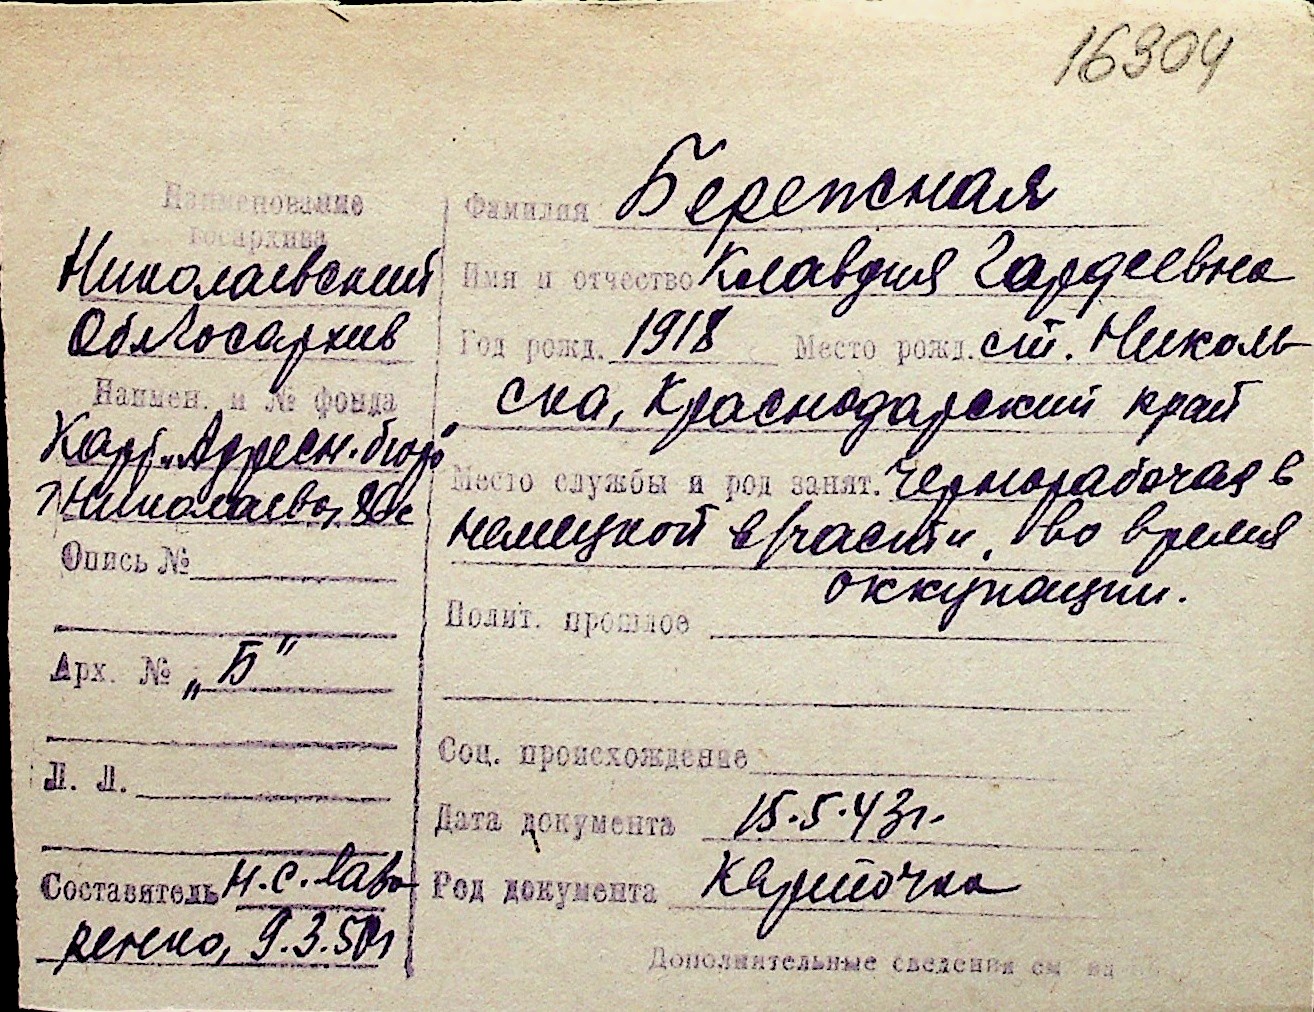 16304
Наименование
госархива
Николаевский
Облгосархив
Наимен. и № фонда
Карт. "Адресн. бюро"
г. Николаева,
Опись №
Арх. № „Б"
Л. Л.
Составитель Н. С. Лавр
ренко, 9.3.50г
Фамилия Бережная
Имя и отчество Клавдия Гордеевна
Год рожд. 1918 Место рожд. ст. Николь-
ска, Краснодарский край
Место службы и род занят. Чернорабочая в
немецкой в/части, во время
оккупации.
Полит. прошлое
Соц. происхождение
Дата документа 15.5.43г.
Род документа Карточка
Дополнительные сведения см на